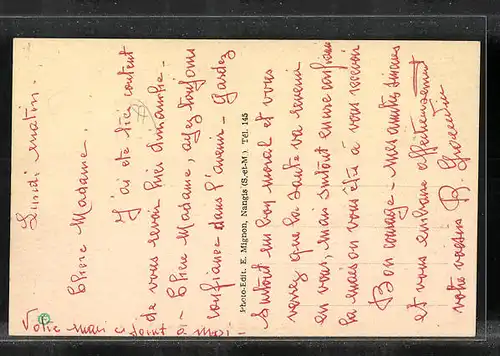 Lundi matin.
Chère Madame.
J'ai été très content
de vous revoir hier dimanche.
- Chère Madame, ayez toujours
confiance dans l'avenir - Gardez
Photo-Edit. E. Mignon, Nangis (S.-et-M.) Tél. 145
surtout un bon moral et vous
verrez que la santé va revenir
en vous, mais surtout encore confiance
la maison vous
à vous recevoir
Bon courage - mes amitiés sincères
et vous embrasse affectueusement
votre
B.
Votre mari se joint à moi -